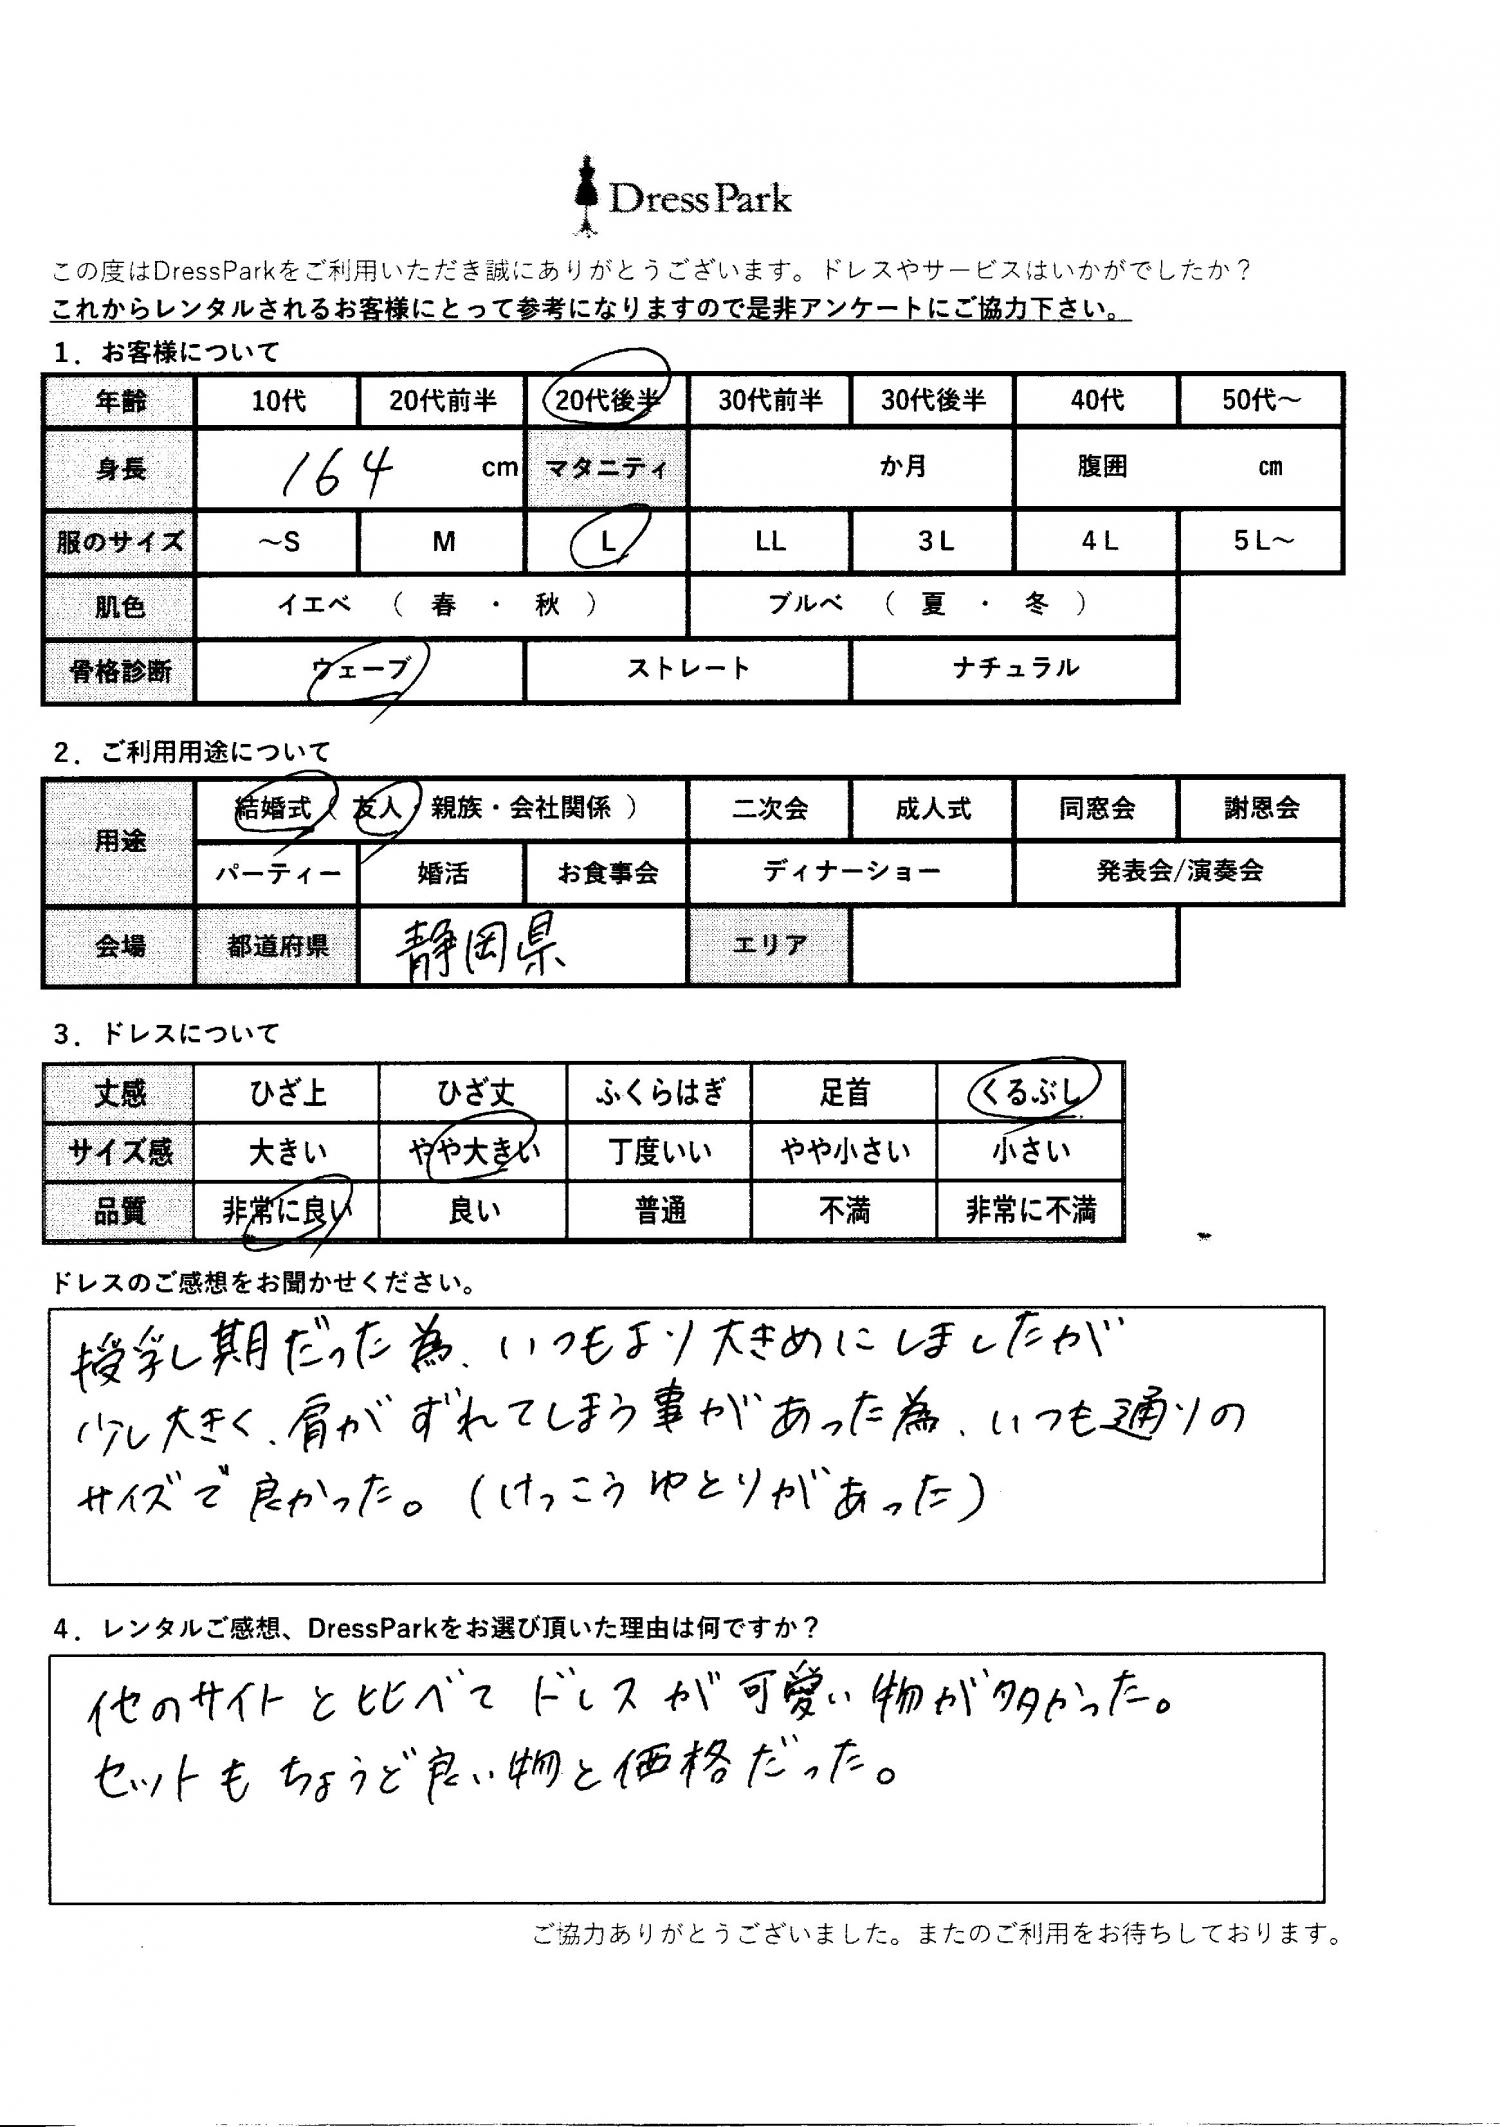 DressPark
この度はDressParkをご利用いただき誠にありがとうございます。ドレスやサービスはいかがでしたか？
これからレンタルされるお客様にとって参考になりますので是非アンケートにご協力下さい。
1．お客様について
年齢 10代 20代前半 20代後半 30代前半 30代後半 40代 50代～
身長 164 cm マタニティ か月 腹囲 ㎝
服のサイズ ～S M L LL 3L 4L 5L～
肌色 イエベ （ 春 ・ 秋 ） ブルベ （ 夏 ・ 冬 ）
骨格診断 ウェーブ ストレート ナチュラル
2．ご利用用途について
用途 結婚式（ 友人・親族・会社関係 ） 二次会 成人式 同窓会 謝恩会
パーティー 婚活 お食事会 ディナーショー 発表会/演奏会
会場 都道府県 静岡県 エリア
3．ドレスについて
丈感 ひざ上 ひざ丈 ふくらはぎ 足首 くるぶし
サイズ感 大きい やや大きい 丁度いい やや小さい 小さい
品質 非常に良い 良い 普通 不満 非常に不満
ドレスのご感想をお聞かせください。
授乳期だった為、いつもより大きめにしましたが
少し大きく、肩がずれてしまう事があった為、いつも通りの
サイズで良かった。（けっこうゆとりがあった）
4．レンタルご感想、DressParkをお選び頂いた理由は何ですか？
他のサイトと比べてドレスが可愛い物が多かった。
セットもちょうど良い物と価格だった。
ご協力ありがとうございました。またのご利用をお待ちしております。